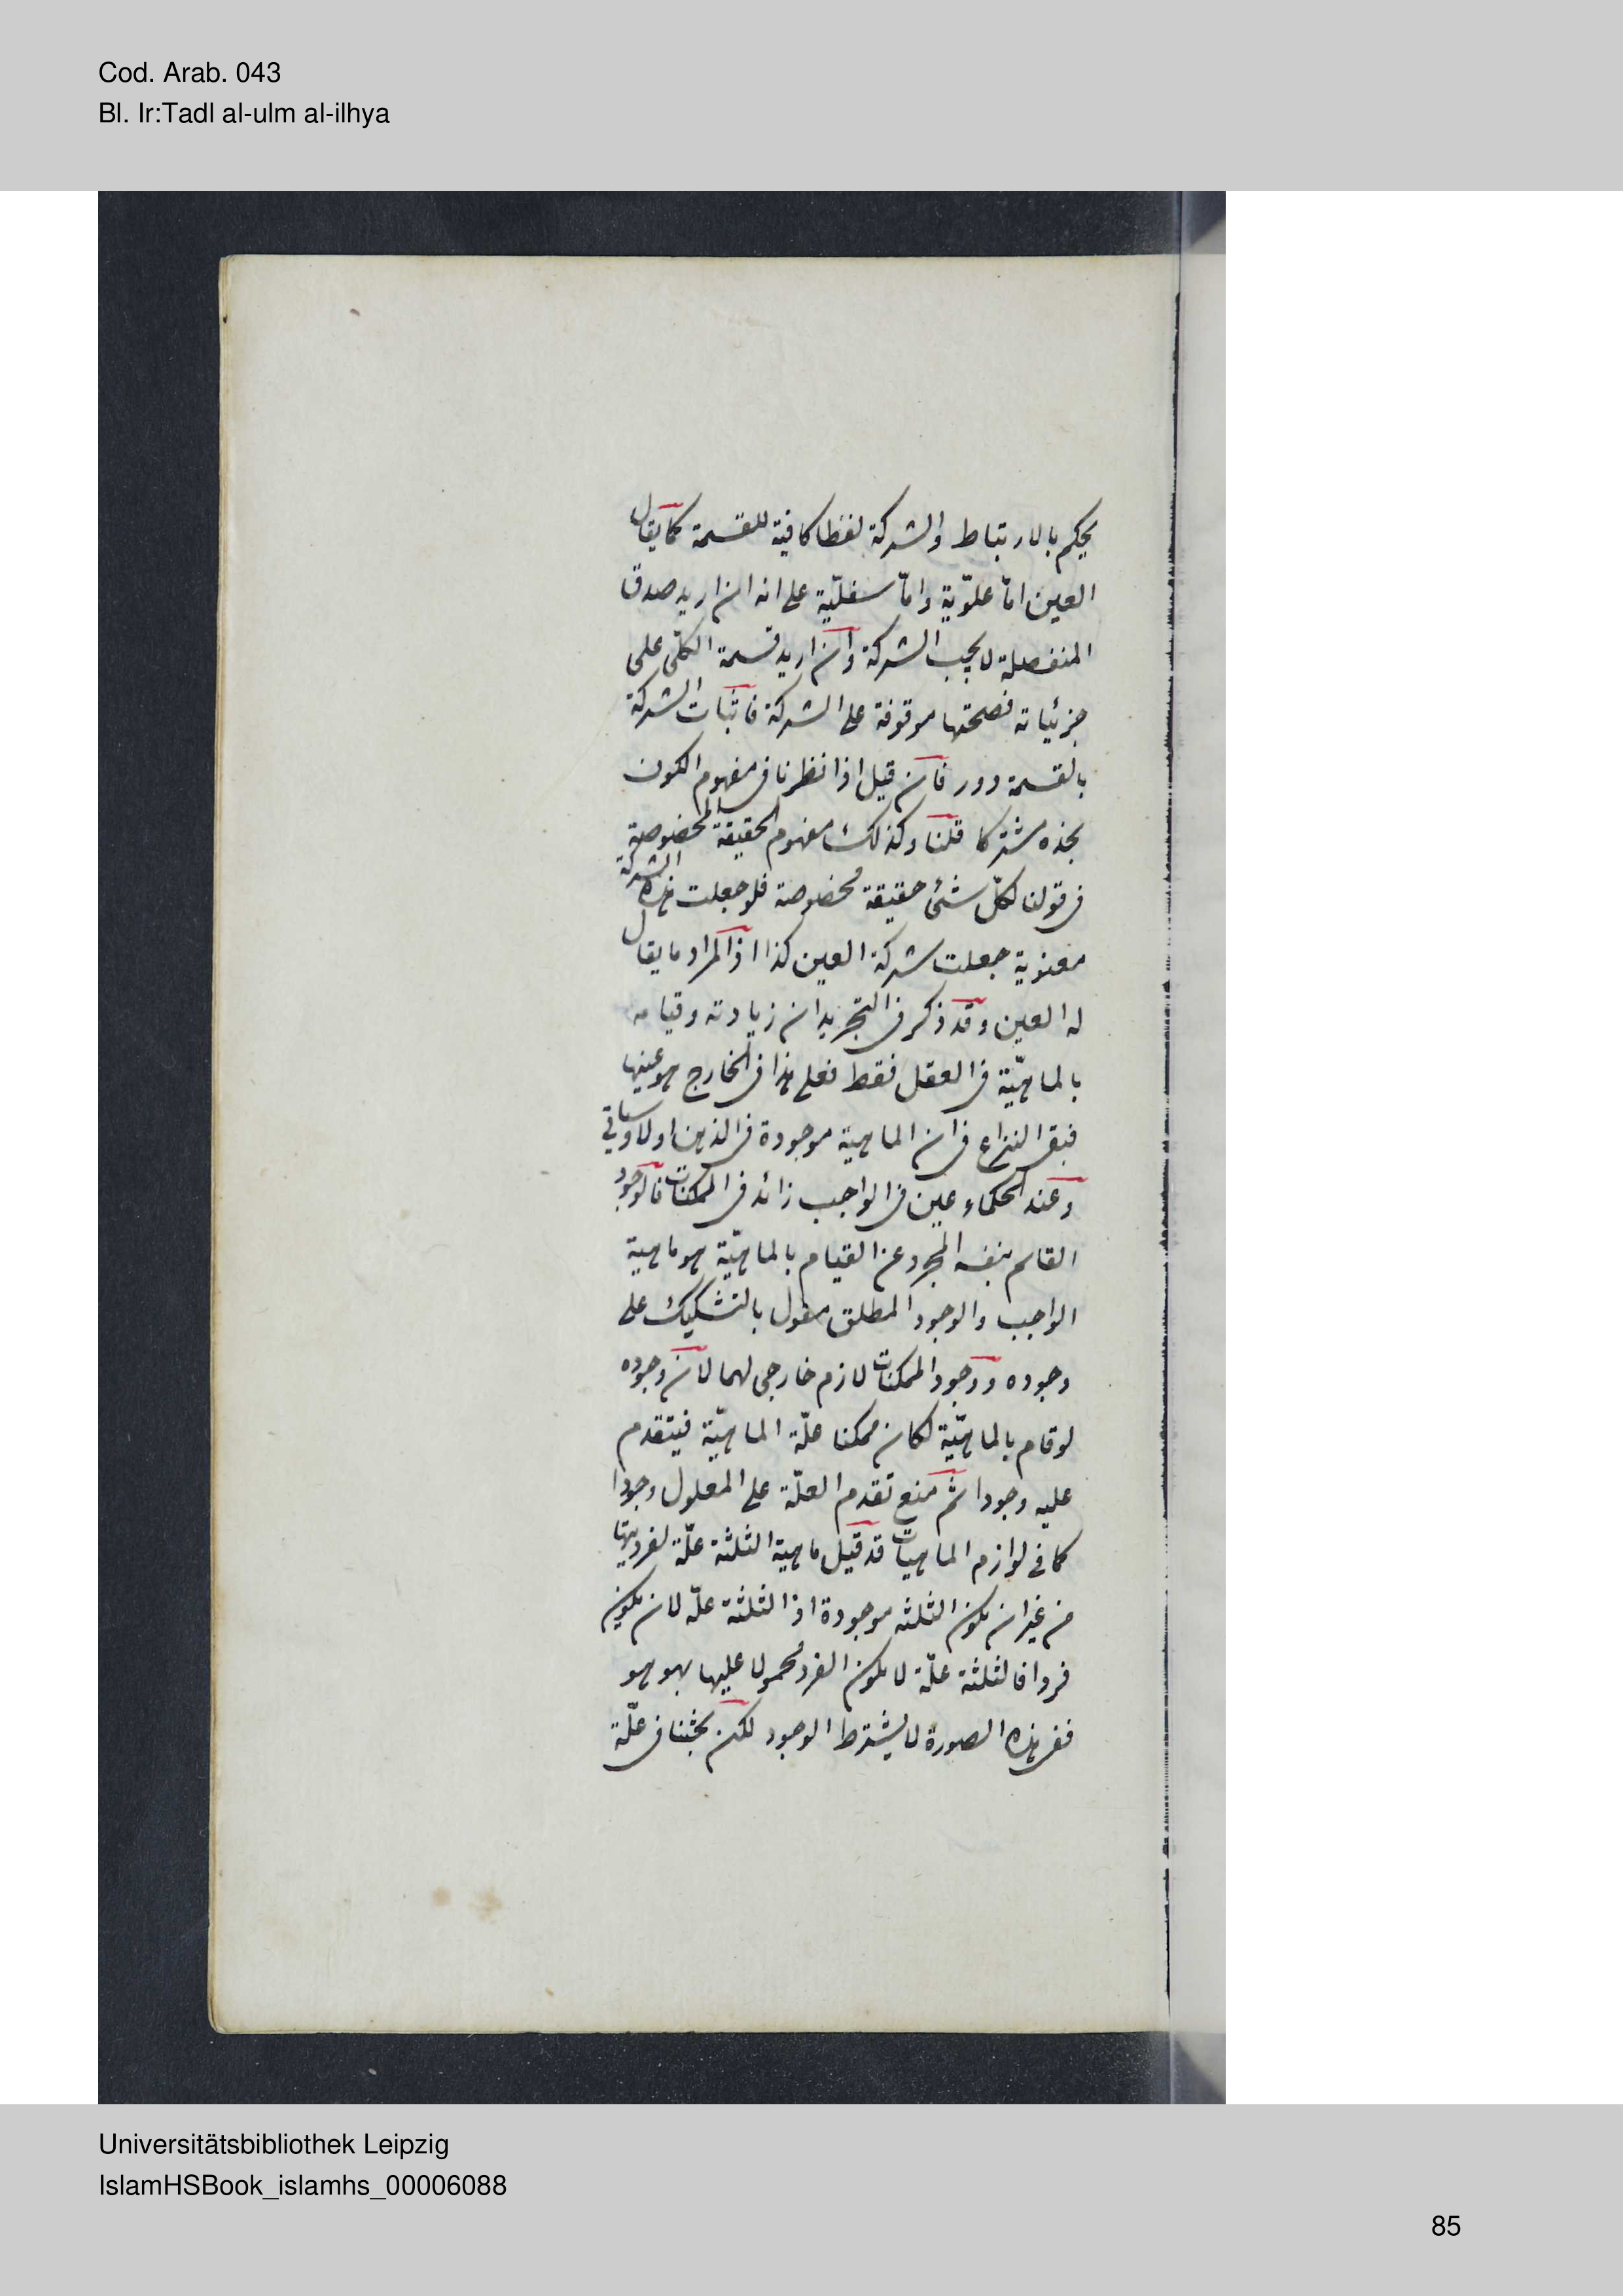 Cod. Arab. 043
Bl. Ir:Tadl al-ulm al-ilhya
يحكم بالارتباط والشركة لفظا كافية للقسمة كما يقال
العين امّا علوّية وامّا سفليّة على انه ان اريد صدق
المنفصلة لا يجب الشركة وان اريد قسمة الكلّى على
جزئياته فصحتها موقوفة على الشركة فاثبات الشركة
بالقسمة دور فان قيل اذا نظرنا فى مفهوم الكون
نجده مشتركا قلنا وكذلك مفهوم الحقيقة المخصوصة
فى قولنا لكلّ شئ حقيقة مخصوصة فلو جعلت هذه الشركة
معنوية جعلت شركة العين كذا اذ المراد ما يقال
له العين وقد ذكر فى التجريد ان زيادته وقيامه
بالماهيّة فى العقل فقط فعلى هذا فى الخارج هو عينها
فبقى النزاع فى ان الماهية موجودة فى الذهن او لا وسياتى
وعند الحكماء عين فى الواجب زائد فى الممكنات فالوجود
القائم بنفسه المجرد عن القيام بالماهيّة هو ماهية
الواجب والوجود المطلق مقول بالتشكيك على
وجوده ووجود الممكنات لازم خارجى لهما لان وجوده
لو قام بالماهيّة لكان ممكنا علّة الماهيّة فيتقدم
عليه وجودا ثم منع تقدم العلّة على المعلول وجودا
كما فى لوازم الماهيات قد قيل ماهية الثلثة علّة لفرديتها
من غير ان يكون الثلثه موجودة اذ الثلثة علّة لان يكون
فردا فالثلثة علّة لا يكون الفرد محمولا عليها بهو هو
ففى هذه الصورة لا يشترط الوجود لكن بحثنا فى علّة
Universitätsbibliothek Leipzig
IslamHSBook_islamhs_00006088
85